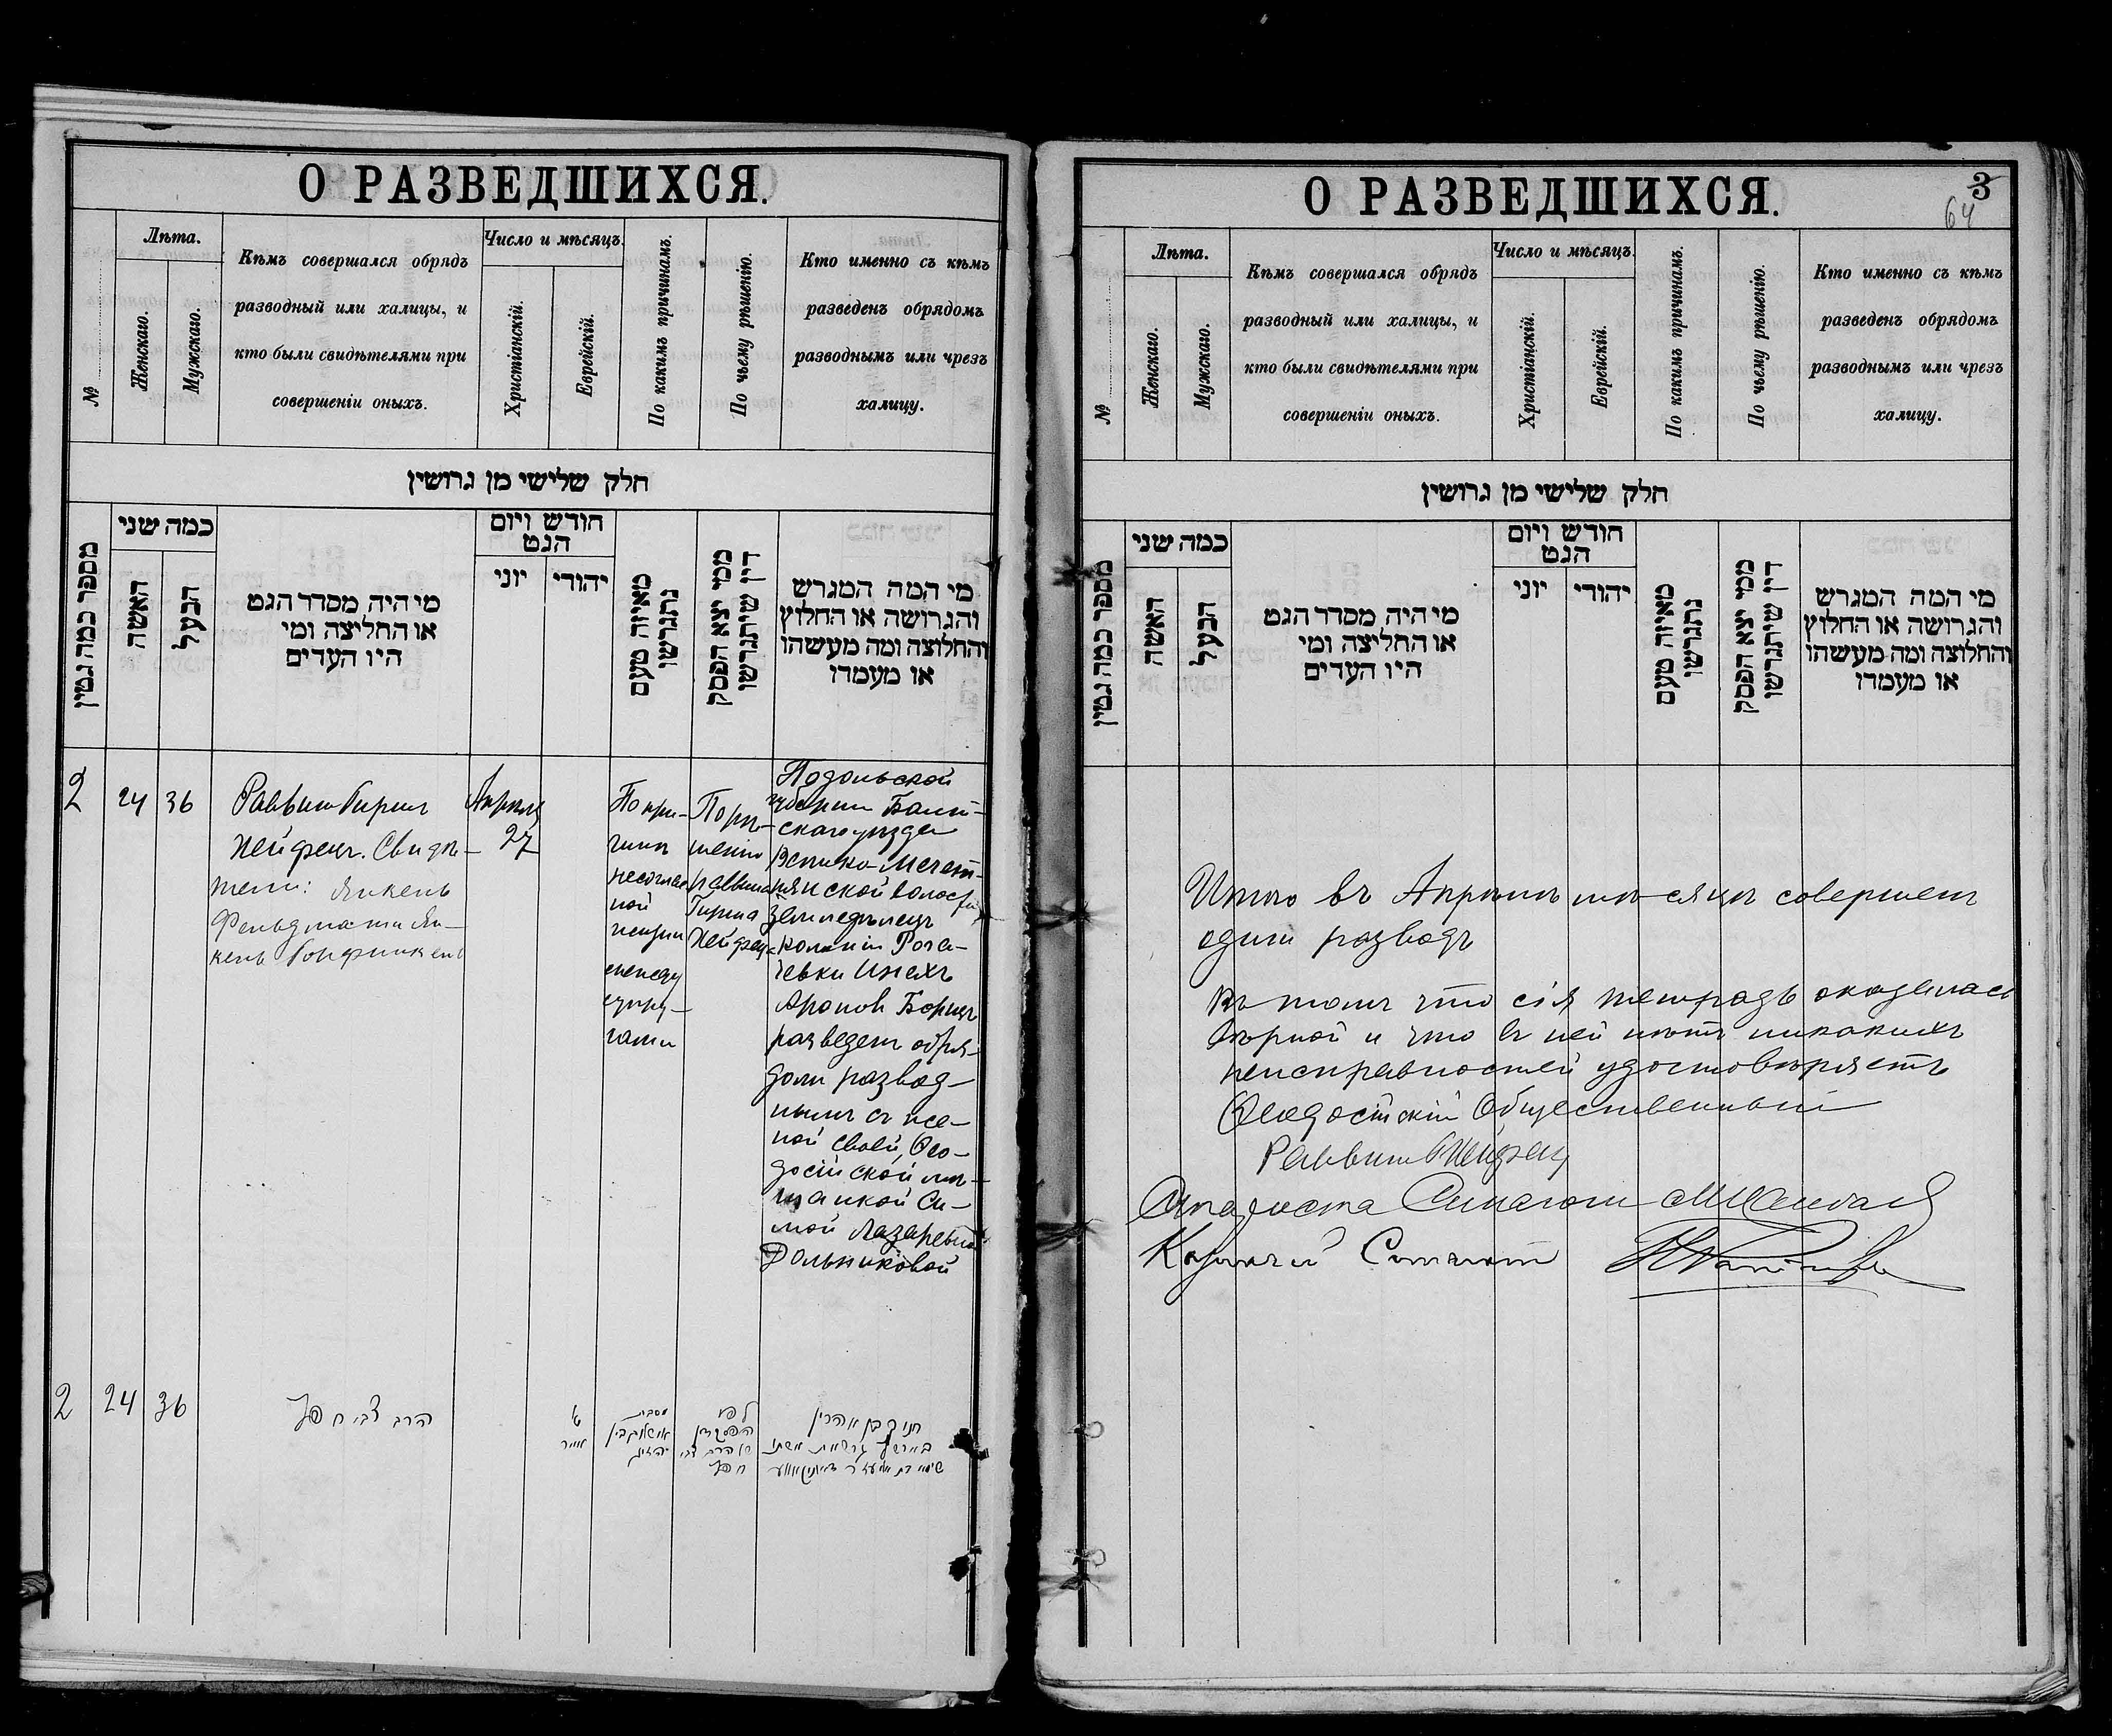 О РАЗВЕДШИХСЯ.
№
Лѣта.
Женскаго.
Мужскаго.
Кѣмъ совершался обрядъ
разводный или халицы, и
кто были свидѣтелями при
совершеніи оныхъ.
Число и мѣсяцъ.
Христіанскій.
Еврейскій.
По какимъ причинамъ.
По чьему рѣшенію.
Кто именно съ кѣмъ
разведенъ обрядомъ
разводнымъ или чрезъ
халицу.
חלק שלישי מן גרושין
מספר כמה גטין
כמה שני
האשה
הבעל
מי היה מסדר הגט
או החליצה ומי
היו העדים
חודש ויום
הגט
יוני
יהודי
מאיזה טעם
נתגרשו
ממי יצא הפסק
דין שיתגרשו
מי המה המגרש
והגרושה או החלוץ
והחלוצה ומה מעשהו
או מעמדו
2
24
36
Раввин Гирш
Хейфец. Свидѣ-
тели: Янкель
Фельдман и Ян-
кель
Апрѣля
27
По при-
чинѣ
несоглас
ной
жизни
между
супру-
гами
По рѣ-
шенію
раввина
Гирша
Хейфеца
Подольской
губерніи Балт-
скаго уѣзда
Велико-Мечет-
нянской волости
земледѣлец
колоніи Рога-
чевки
Аронов
разведен обря-
дом развод-
ным с же-
ной своей, Ѳео-
досійской мѣ-
щанкой Си-
мой Лазаревной
Дольниковой
2
24
36
הרב צבי חפץ
ט׳
אייר
מסבת
לפי
הפסק דין
של הרב צבי
חפץ
בן אהרן
גרשאת אשתו
שימי בת
О РАЗВЕДШИХСЯ.
3
64
№
Лѣта.
Женскаго.
Мужскаго.
Кѣмъ совершался обрядъ
разводный или халицы, и
кто были свидѣтелями при
совершеніи оныхъ.
Число и мѣсяцъ.
Христіанскій.
Еврейскій.
По какимъ причинамъ.
По чьему рѣшенію.
Кто именно съ кѣмъ
разведенъ обрядомъ
разводнымъ или чрезъ
халицу.
חלק שלישי מן גרושין
מספר כמה גטין
כמה שני
האשה
הבעל
מי היה מסדר הגט
או החליצה ומי
היו העדים
חודש ויום
הגט
יוני
יהודי
מאיזה טעם
נתגרשו
ממי יצא הפסק
דין שיתגרשו
מי המה המגרש
והגרושה או החלוץ
והחלוצה ומה מעשהו
או מעמדו
Итого въ Апрѣлѣ мѣсяцѣ совершен
один разводъ
Въ том что сія тетрадь оказалась
вѣрной и что в ней нѣтъ никакихъ
неисправностей удостовѣряетъ
Ѳеодосійскій Общественный
Раввин Хейфец
Староста Синагоги
Казначей Синагоги